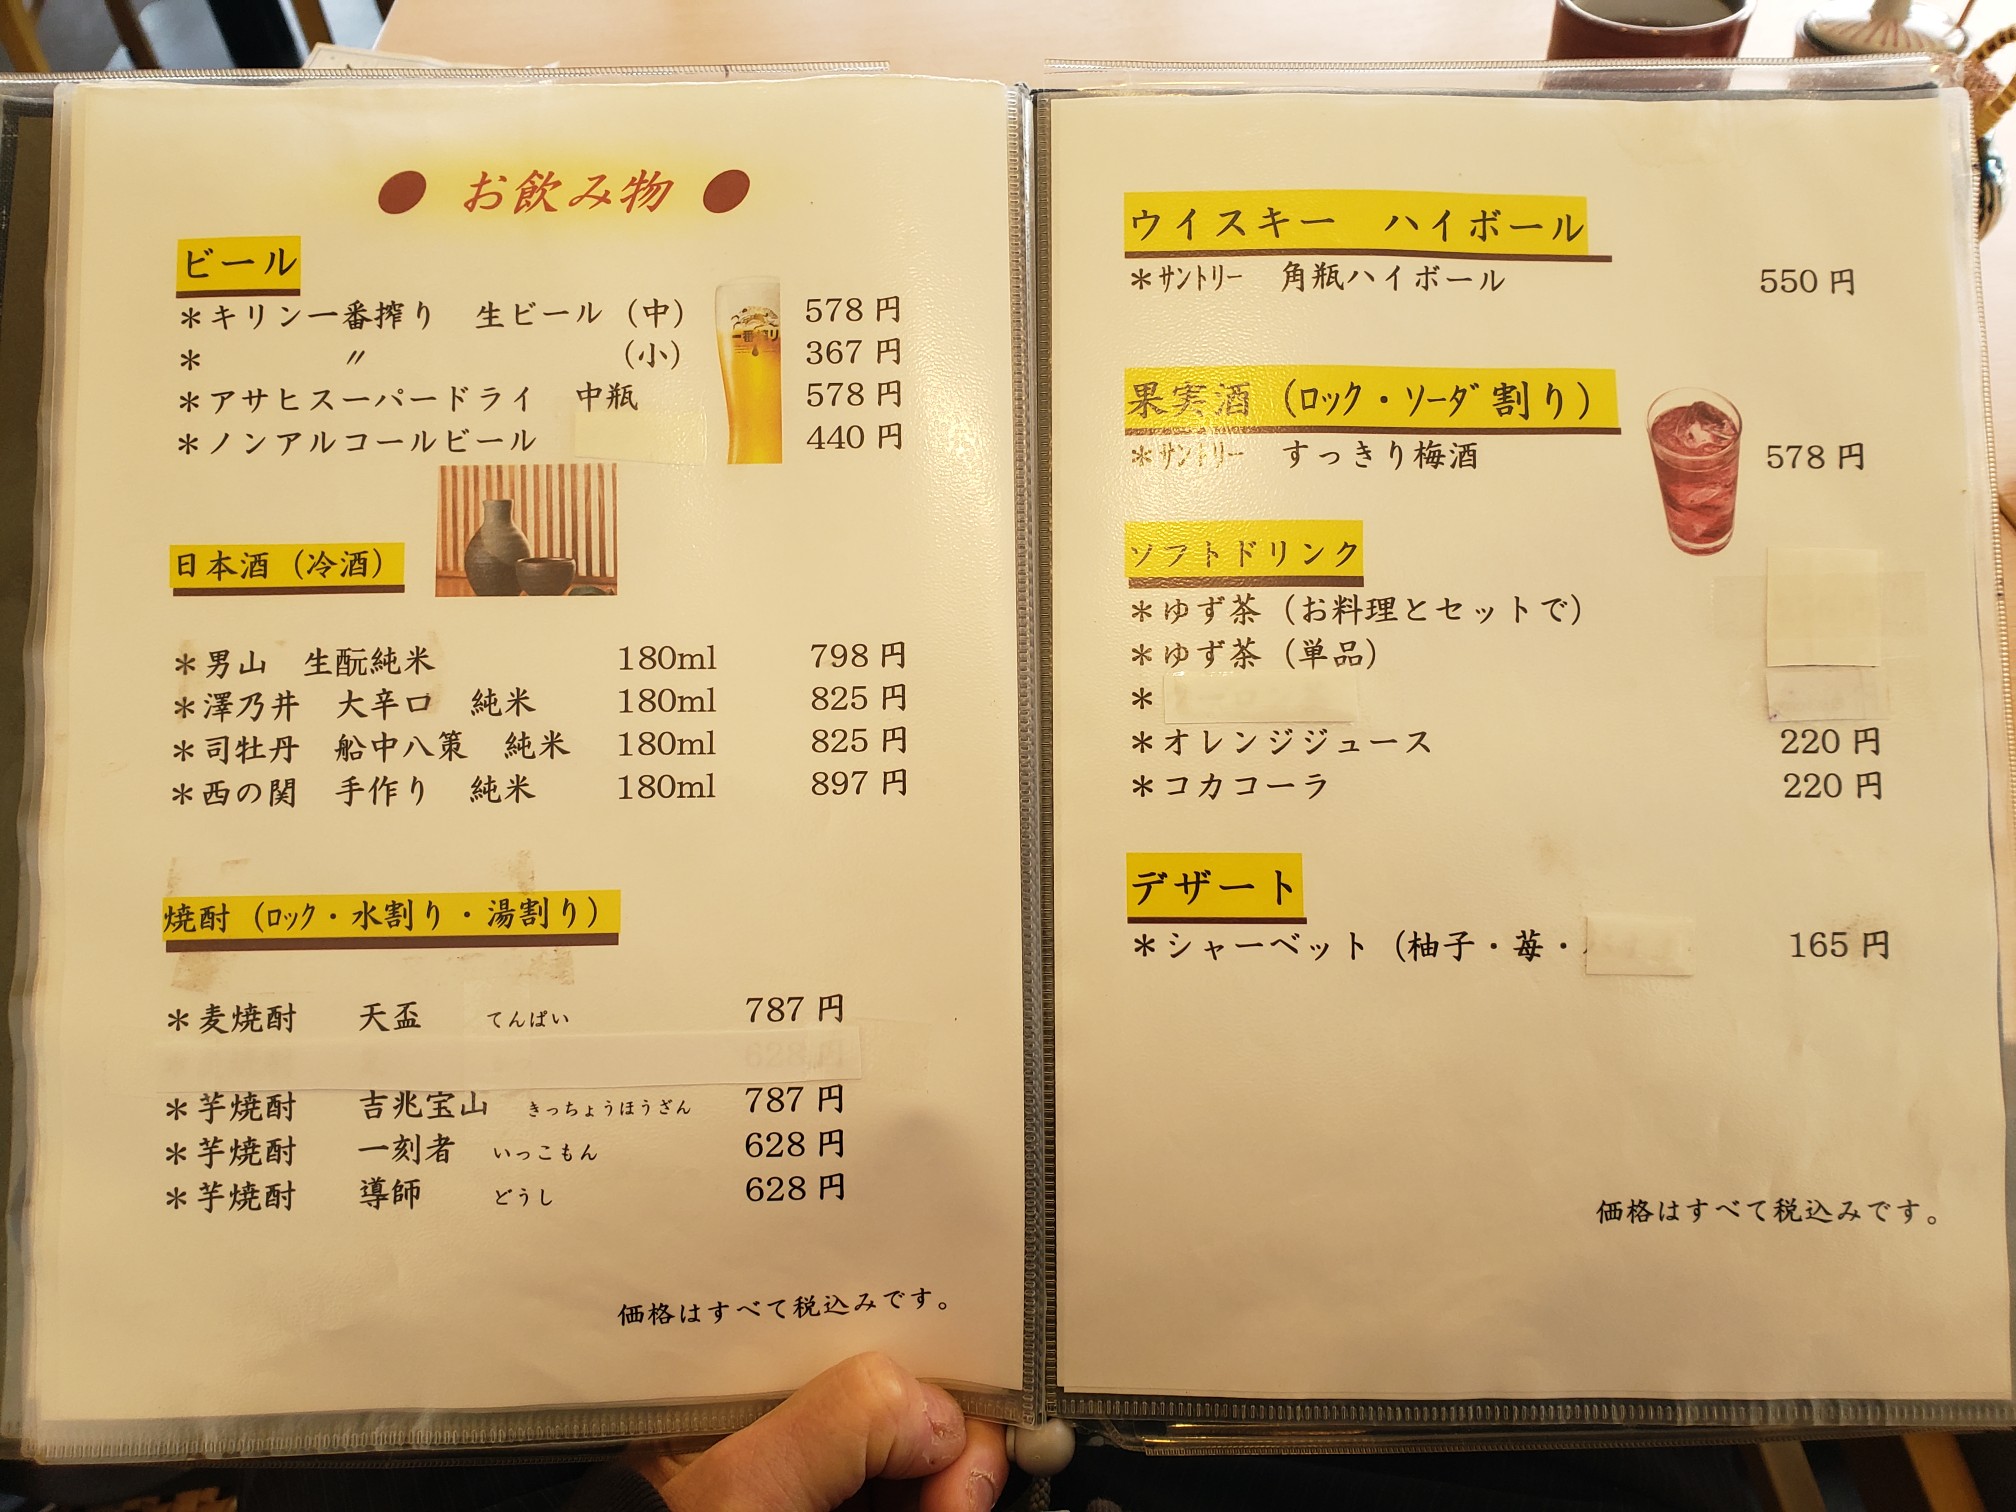 ● お飲み物 ●
ビール
＊キリン一番搾り 生ビール（中） 578円
＊ 〃 （小） 367円
＊アサヒスーパードライ 中瓶 578円
＊ノンアルコールビール 440円
日本酒（冷酒）
＊男山 生酛純米 180ml 798円
＊澤乃井 大辛口 純米 180ml 825円
＊司牡丹 船中八策 純米 180ml 825円
＊西の関 手作り 純米 180ml 897円
焼酎（ﾛｯｸ・水割り・湯割り）
＊麦焼酎 天盃 てんぱい 787円
628円
＊芋焼酎 吉兆宝山 きっちょうほうざん 787円
＊芋焼酎 一刻者 いっこもん 628円
＊芋焼酎 導師 どうし 628円
価格はすべて税込みです。
ウイスキー ハイボール
＊ｻﾝﾄﾘｰ 角瓶ハイボール 550円
果実酒（ﾛｯｸ・ｿｰﾀﾞ割り）
＊ｻﾝﾄﾘｰ すっきり梅酒 578円
ソフトドリンク
＊ゆず茶（お料理とセットで）
＊ゆず茶（単品）
＊
＊オレンジジュース 220円
＊コカコーラ 220円
デザート
＊シャーベット（柚子・苺・ 165円
価格はすべて税込みです。